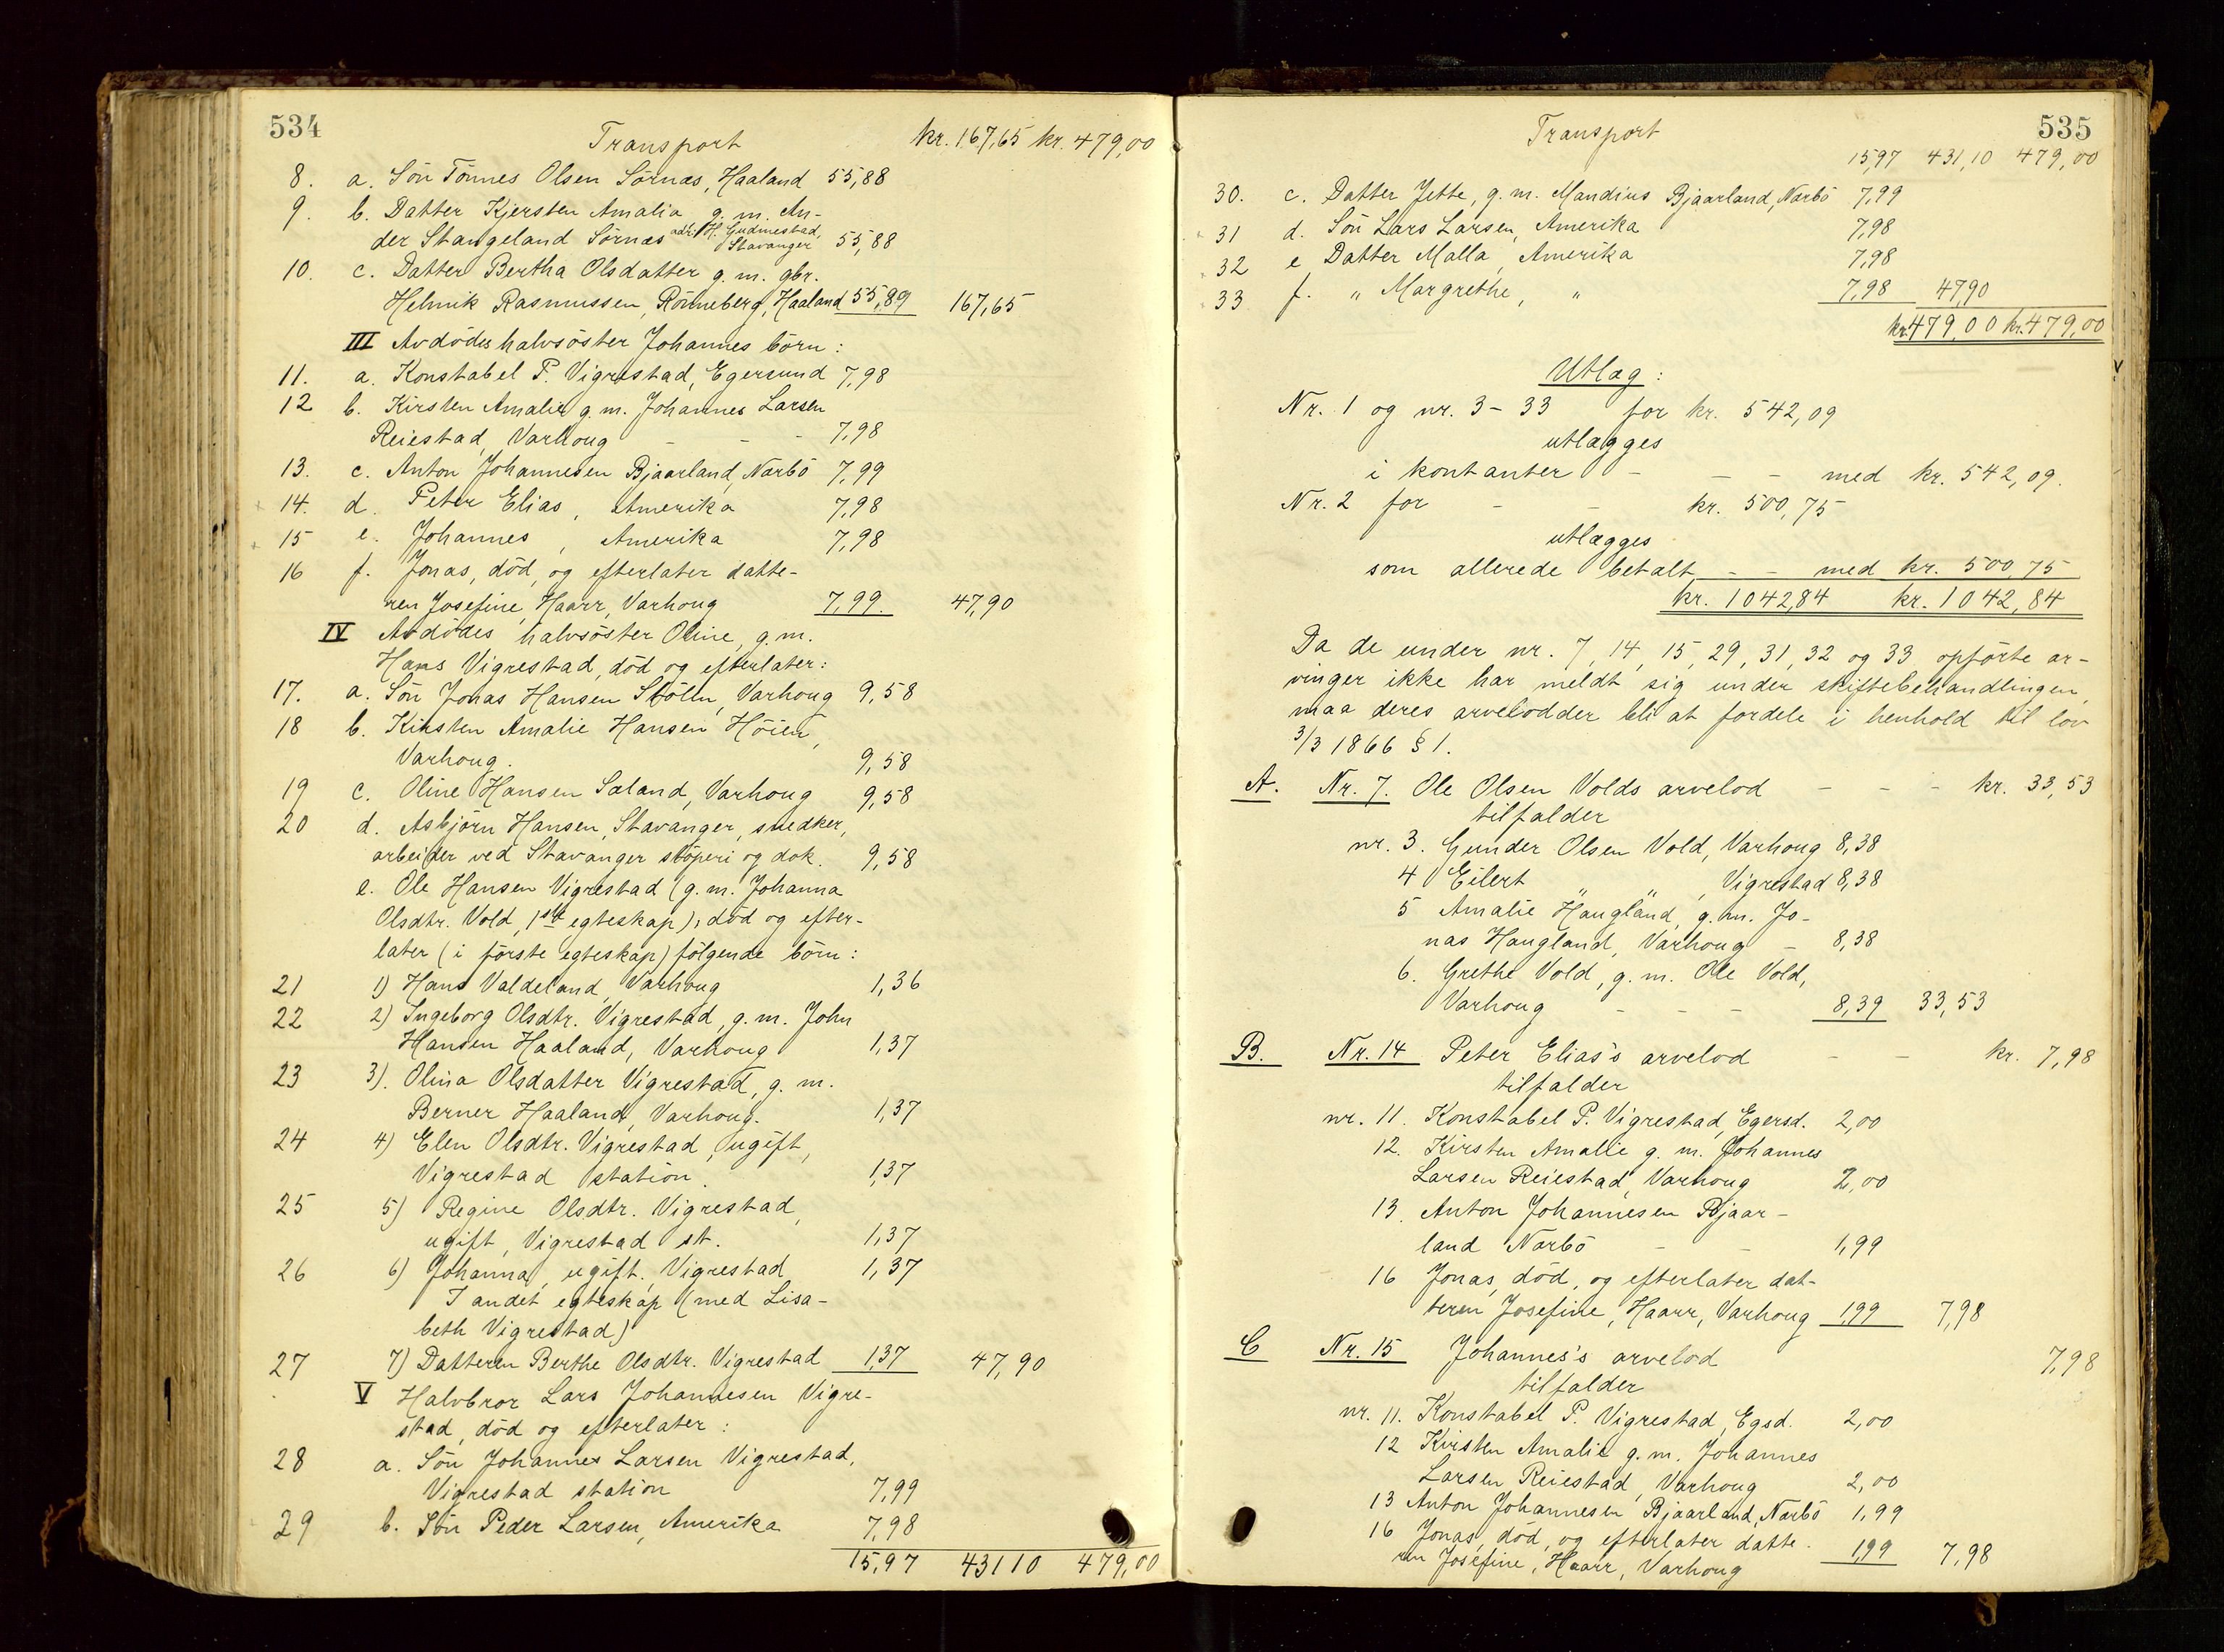 534
Transport kr. 167,65 kr. 479,00
8. a. Sön Tönnes Olsen Sörnæs, Haaland 55,88
9. b. Datter Kjersten Amalia g. m. An-
der Stangeland Sörnæs adr. H. Gudmestad, Stavanger 55,88
10. c. Datter Bertha Olsdatter g. m. gbr.
Helmik Rasmussen, Rönneberg, Haaland 55,89 167,65
III Avdödes halvsöster Johannes börn:
11. a. Konstabel P. Vigrestad, Egersund 7,98
12 b. Kirsten Amalie g. m. Johannes Larsen
Reiestad, Varhoug - - - 7,98
13. c. Anton Johannesen Bjaarland, Nærbö 7,99
14. d. Peter Elias, Amerika 7,98
15 e. Johannes, Amerika 7,98
16 f. Jonas, död, og efterlater datte-
ren Josefine, Haarr, Varhoug 7,99 47,90
IV Avdödes halvsöster Oline, g. m.
Hans Vigrestad, död og efterlater:
17. a. Sön Jonas Hansen Stölln, Varhoug 9,58
18 b. Kirsten Amalie Hansen Höien,
Varhoug. 9,58
19 c. Oline Hansen Sæland, Varhoug 9,58
20 d. Asbjörn Hansen, Stavanger, snedker,
arbeider ved Stavanger stöperi og dok. 9,58
e. Ole Hansen Vigrestad (g. m. Johanna
Olsdtr. Vold, 1ste egteskap), död og efter-
later (i förste egteskap) fölgende börn:
21 1) Hans Valdeland, Varhoug 1,36
22 2) Ingeborg Olsdtr. Vigrestad, g. m. John
Hansen Haaland, Varhoug 1,37
23 3). Olina Olsdatter Vigrestad, g. m.
Berner Haaland, Varhoug. 1,37
24 4) Elen Olsdtr. Vigrestad, ugift,
Vigrestad station. 1,37
25 5) Regine Olsdtr. Vigrestad,
ugift, Vigrestad st. 1,37
26 6) Johanna, ugift. Vigrestad 1,37
I andet egteskap (med Lisa-
beth Vigrestad)
27 7) Datteren Berthe Olsdtr. Vigrestad 1,37 47,90
V Halvbror Lars Johannesen Vigre-
stad, död og efterlater:
28 a. Sön Johannes Larsen Vigrestad,
Vigrestad station 7,99
29 b. Sön Peder Larsen, Amerika 7,98
15,97 431 10 479,00
535
Transport
15,97 431,10 479,00
30. c. Datter Jette, g. m. Mandius Bjaarland, Nærbö 7,99
31 d. Sön Lars Larsen, Amerika 7,98
32 e Datter Malla, Amerika 7,98
33 f. " Margrethe, " 7,98 47,90
kr. 479,00 kr. 479,00
Utlæg:
Nr. 1 og nr. 3 - 33 for kr. 542,09
utlægges
i kontanter - - - med kr. 542,09.
Nr. 2 for - - kr. 500,75
utlægges
som allerede betalt - - med kr. 500,75
kr. 1042,84 kr. 1042,84
Da de under nr. 7, 14, 15, 29, 31, 32 og 33 opförte ar-
vinger ikke har meldt sig under skiftebehandlingen,
maa deres arvelodder bli at fordele i henhold til lov
3/3 1866 § 1.
A. Nr. 7. Ole Olsen Volds arvelod - - - kr. 33,53
tilfalder
nr. 3. Gunder Olsen Vold, Varhoug 8,38
4 Eilert " " , Vigrestad 8,38
5 Amalie Haugland, g. m. Jo-
nas Haugland, Varhoug - 8,38
6. Grethe Vold, g. m. Ole Vold,
Varhoug - - - 8,39 33,53
B. Nr. 14 Peter Elias's arvelod - - kr. 7,98
tilfalder
nr. 11. Konstabel P. Vigrestad, Egersd. 2,00
12. Kirsten Amalie g. m. Johannes
Larsen Reiestad, Varhoug 2,00
13. Anton Johannesen Bjaar-
land Nærbö - - 1,99
16 Jonas, död, og efterlater dat-
teren Josefine, Haarr, Varhoug 1,99 7,98
C Nr. 15 Johannes's arvelod 7,98
tilfalder
nr. 11. Konstabel P. Vigrestad, Egsd. 2,00
12 Kirsten Amalie g. m. Johannes
Larsen Reiestad, Varhoug 2,00
13 Anton Johannesen Bjaarland, Nærbö 1,99
16 Jonas, död, og efterlater datte-
ren Josefine, Haarr, Varhoug 1,99 7,98